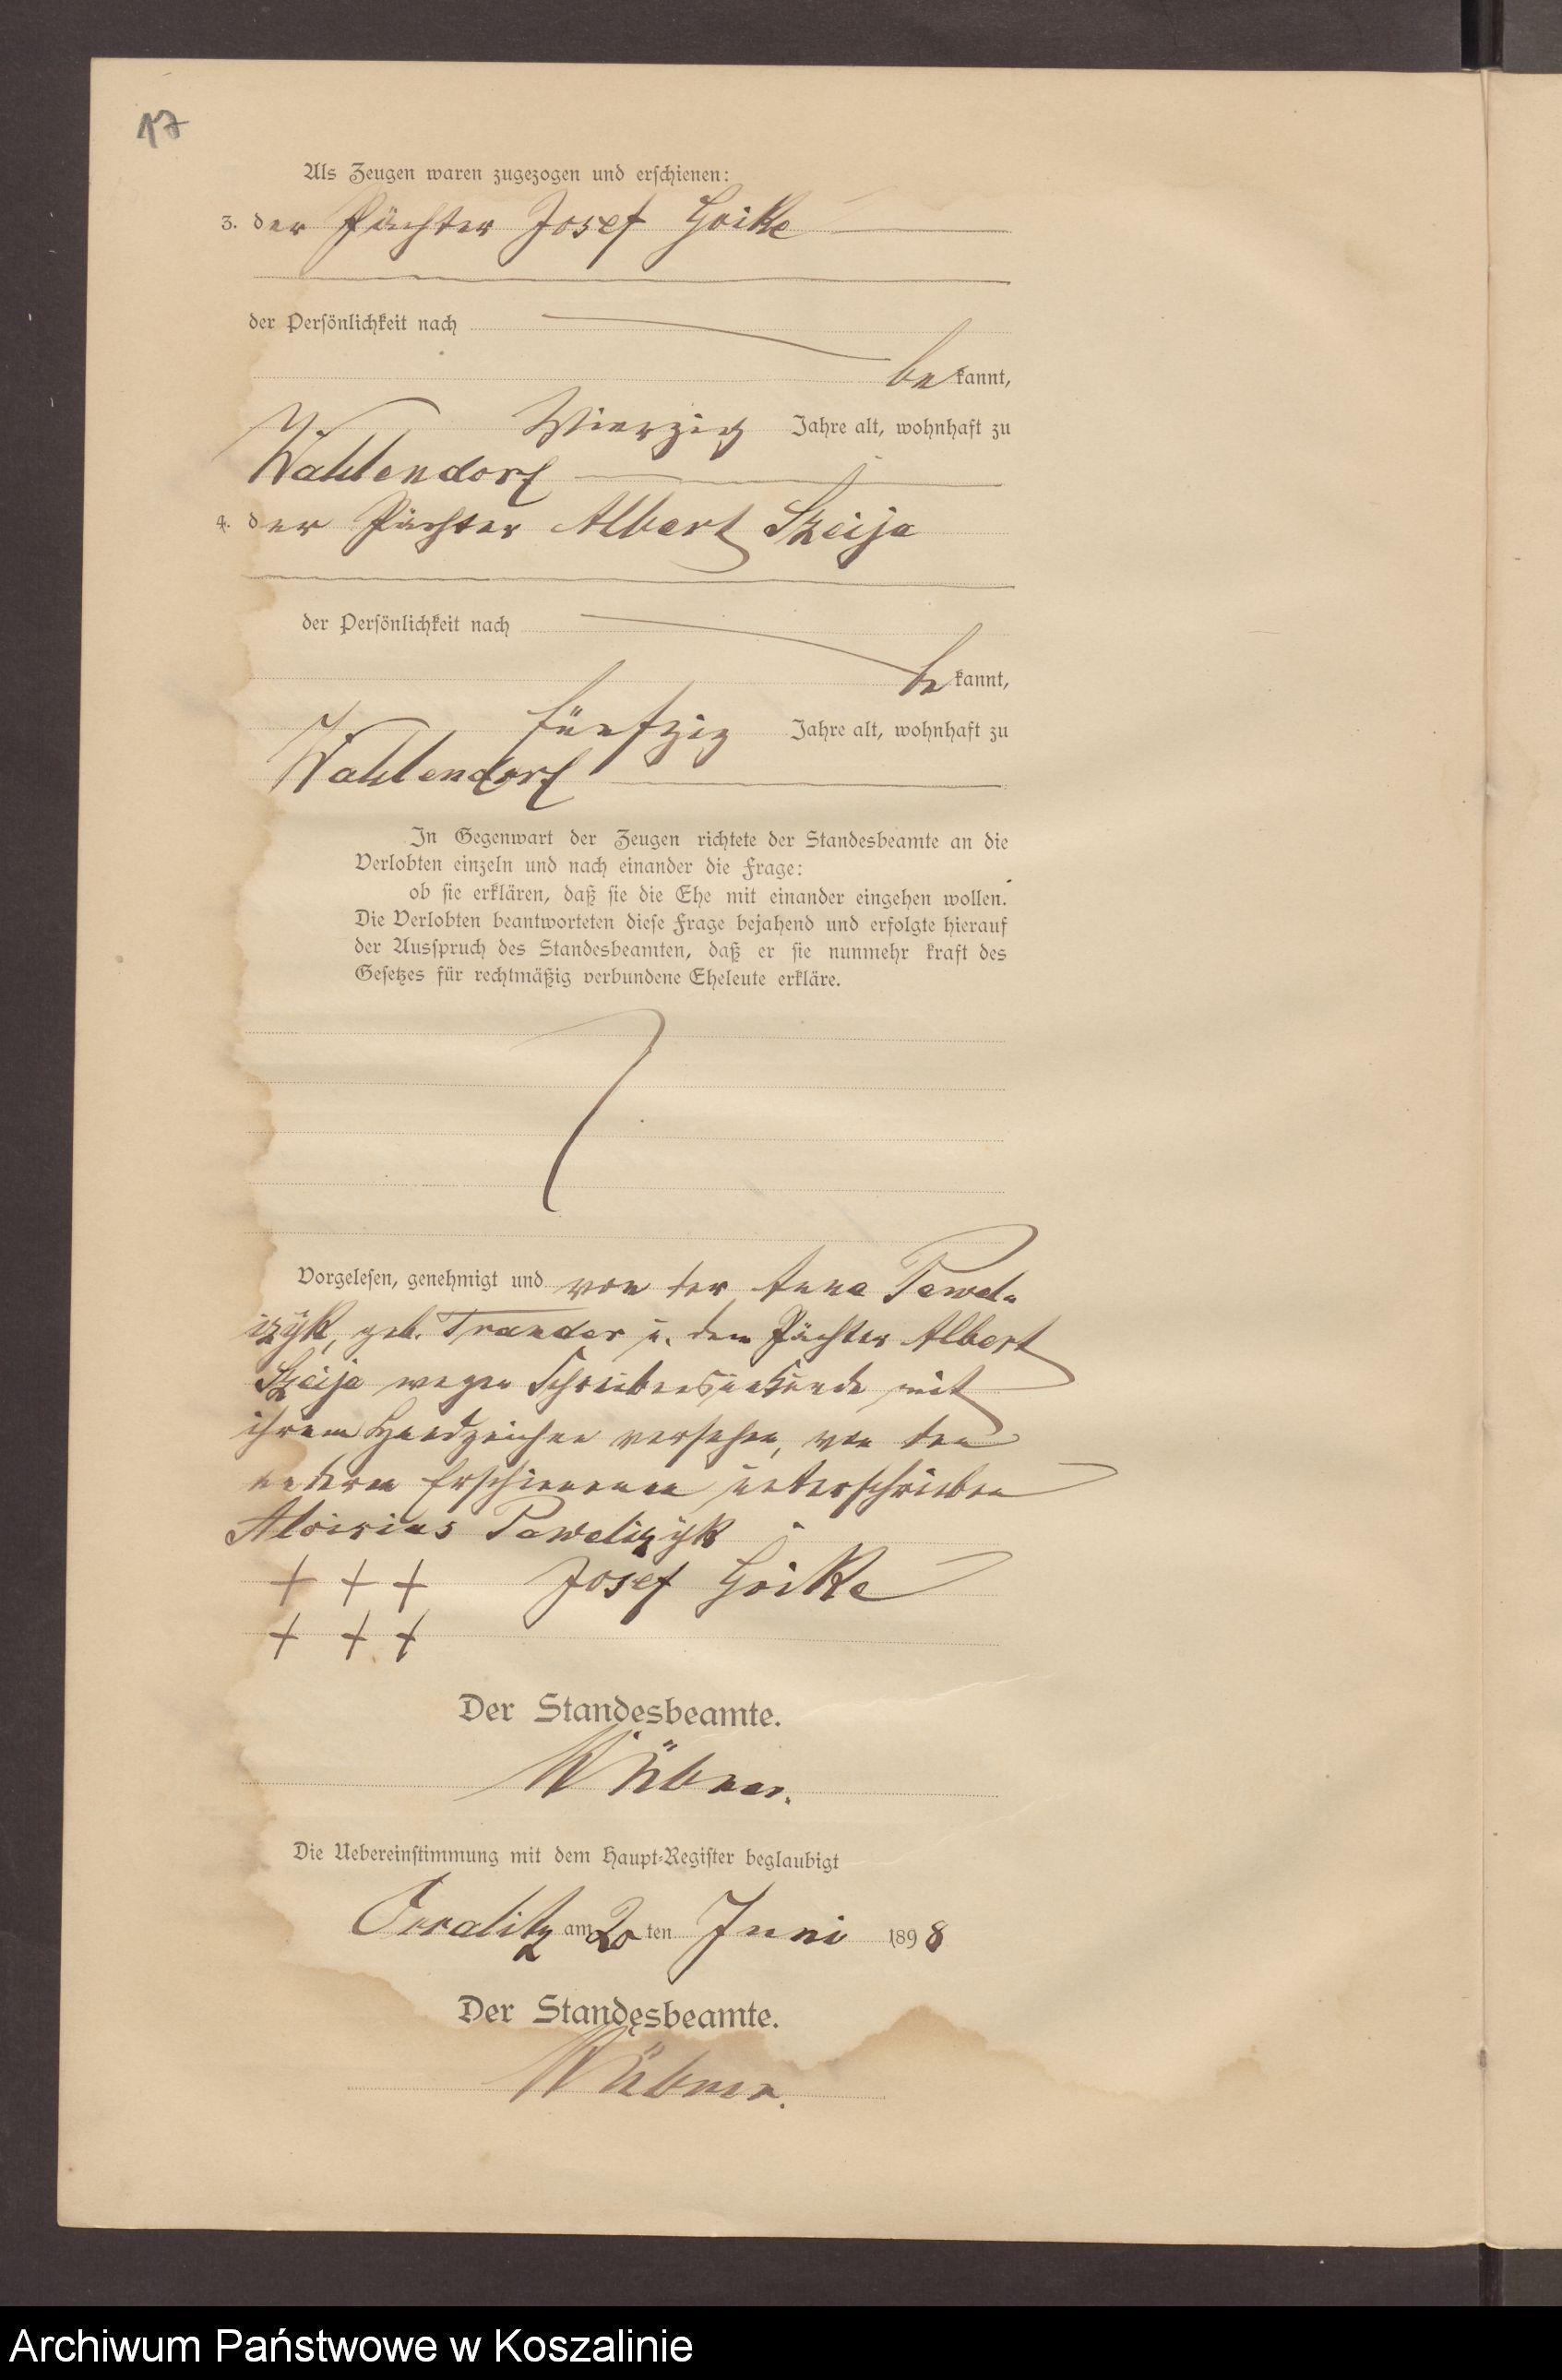 17
Als Zeugen waren zugezogen und erschienen:
3. der Pächter Josef Goike
der Persönlichkeit nach
bekannt,
Vierzig Jahre alt, wohnhaft zu
Wahlendorf
4. der Pächter Albert Skeija
der Persönlichkeit nach
bekannt,
fünfzig Jahre alt, wohnhaft zu
Wahlendorf
In Gegenwart der Zeugen richtete der Standesbeamte an die
Verlobten einzeln und nach einander die Frage:
ob sie erklären, daß sie die Ehe mit einander eingehen wollen.
Die Verlobten beantworteten diese Frage bejahend und erfolgte hierauf
der Ausspruch des Standesbeamten, daß er sie nunmehr kraft des
Gesetzes für rechtmäßig verbundene Eheleute erkläre.
Vorgelesen, genehmigt und von der Anna Pawel-
izyk, geb. Trander u. dem Pächter Albert
Skeija wegen Schreibensunkunde mit
ihrem Handzeichen versehen, von den
anderen Erschienenen unterschrieben
Aloisius Pawelizyk
+ + + Josef Goike
+ + +
Der Standesbeamte.
Wübner.
Die Uebereinstimmung mit dem Haupt-Register beglaubigt
am 20 ten Juni 1898
Der Standesbeamte.
Wübner.
Archiwum Państwowe w Koszalinie